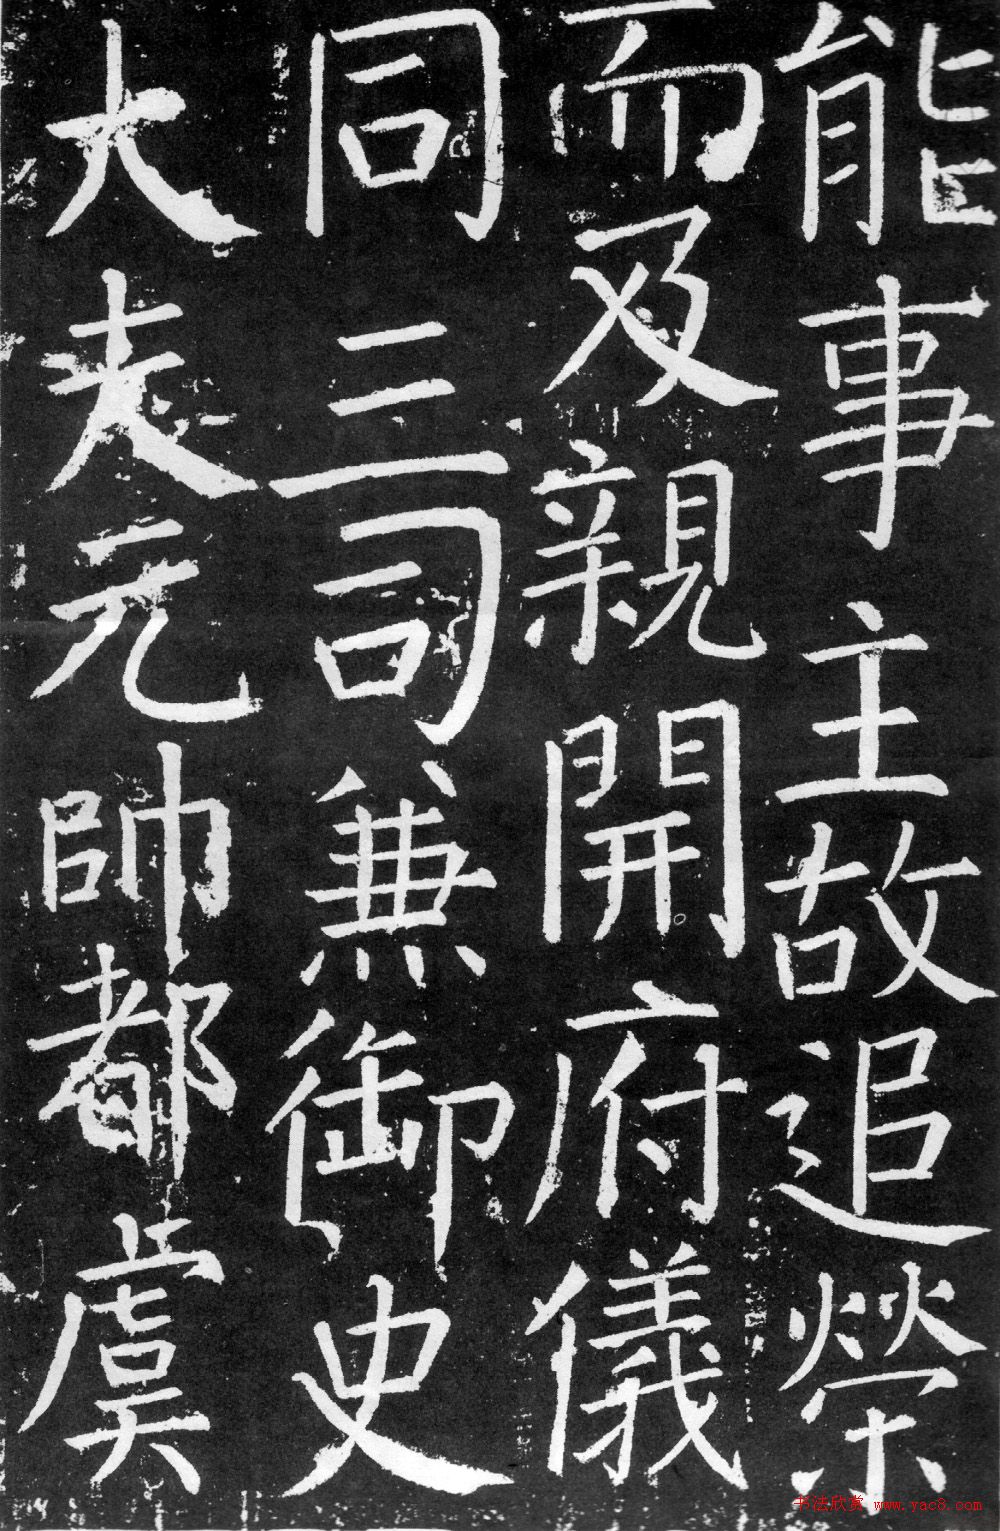 能事主故追榮
而及親開府儀
同三司兼御史
大夫元帥都虞
书法欣赏 www.yac8.com